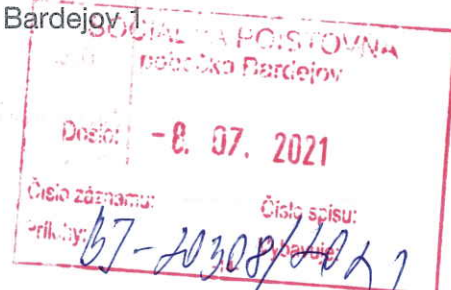 Bardejov 1
SOCIÁLNA POISŤOVŇA
pobočka Bardejov
Došlo: -8. 07. 2021
Číslo záznamu: Číslo spisu:
Prílohy: Vybavuje:
BJ-20308/2021